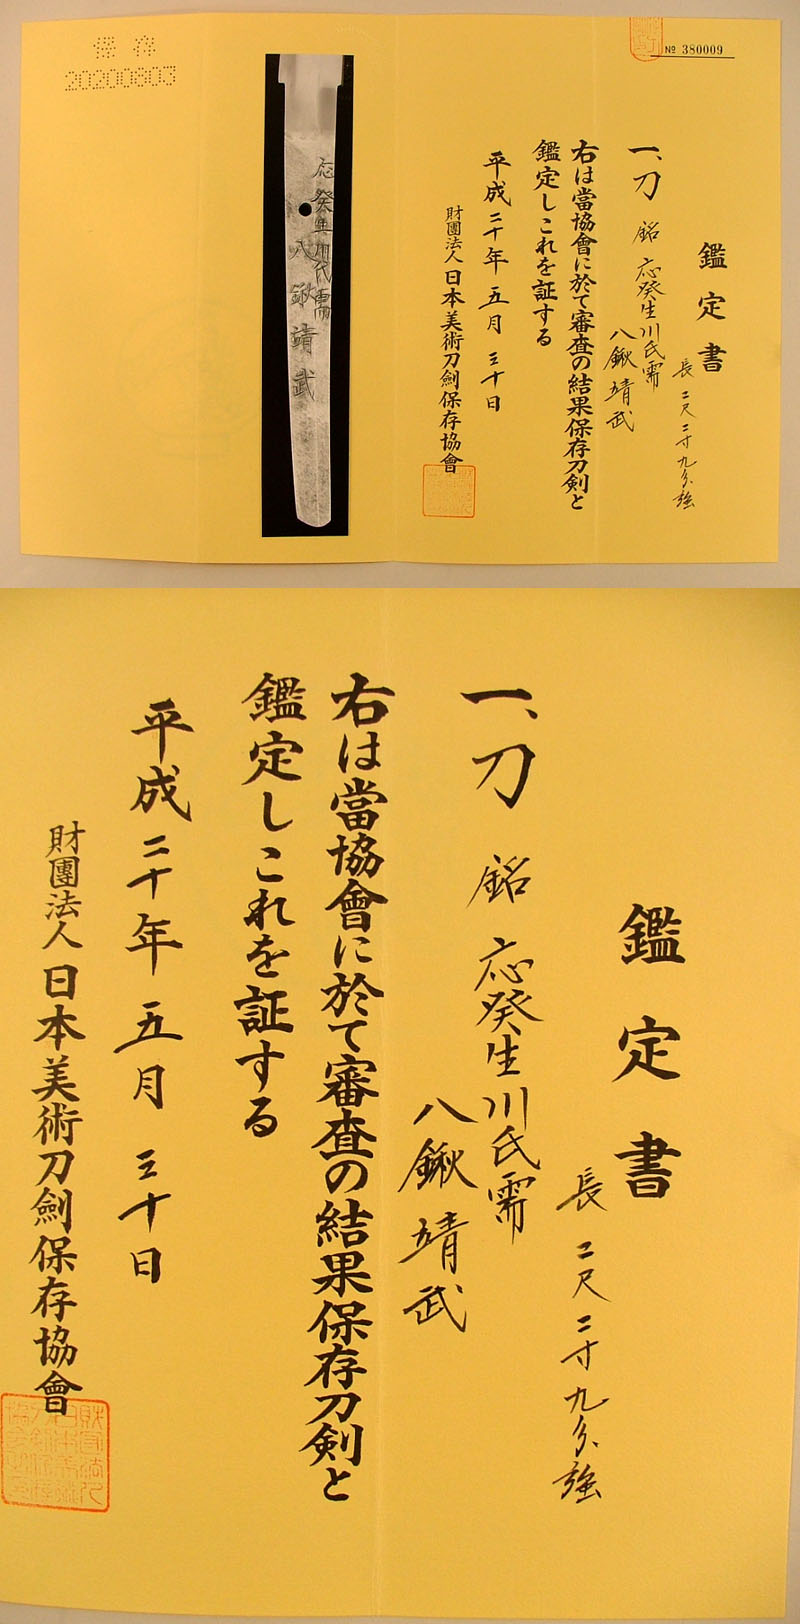 № 380009
鑑定書
長二尺二寸九分強
一、刀 銘 応癸生川氏需
八鍬靖武
右は當協會に於て審査の結果保存刀剣と
鑑定しこれを証する
平成二十年五月三十日
財團法人日本美術刀劍保存協會
応癸生川氏需
八鍬靖武
保存
20200803
鑑定書
長二尺二寸九分強
一、刀 銘 応癸生川氏需
八鍬靖武
右は當協會に於て審査の結果保存刀剣と
鑑定しこれを証する
平成二十年五月三十日
財團法人日本美術刀劍保存協會